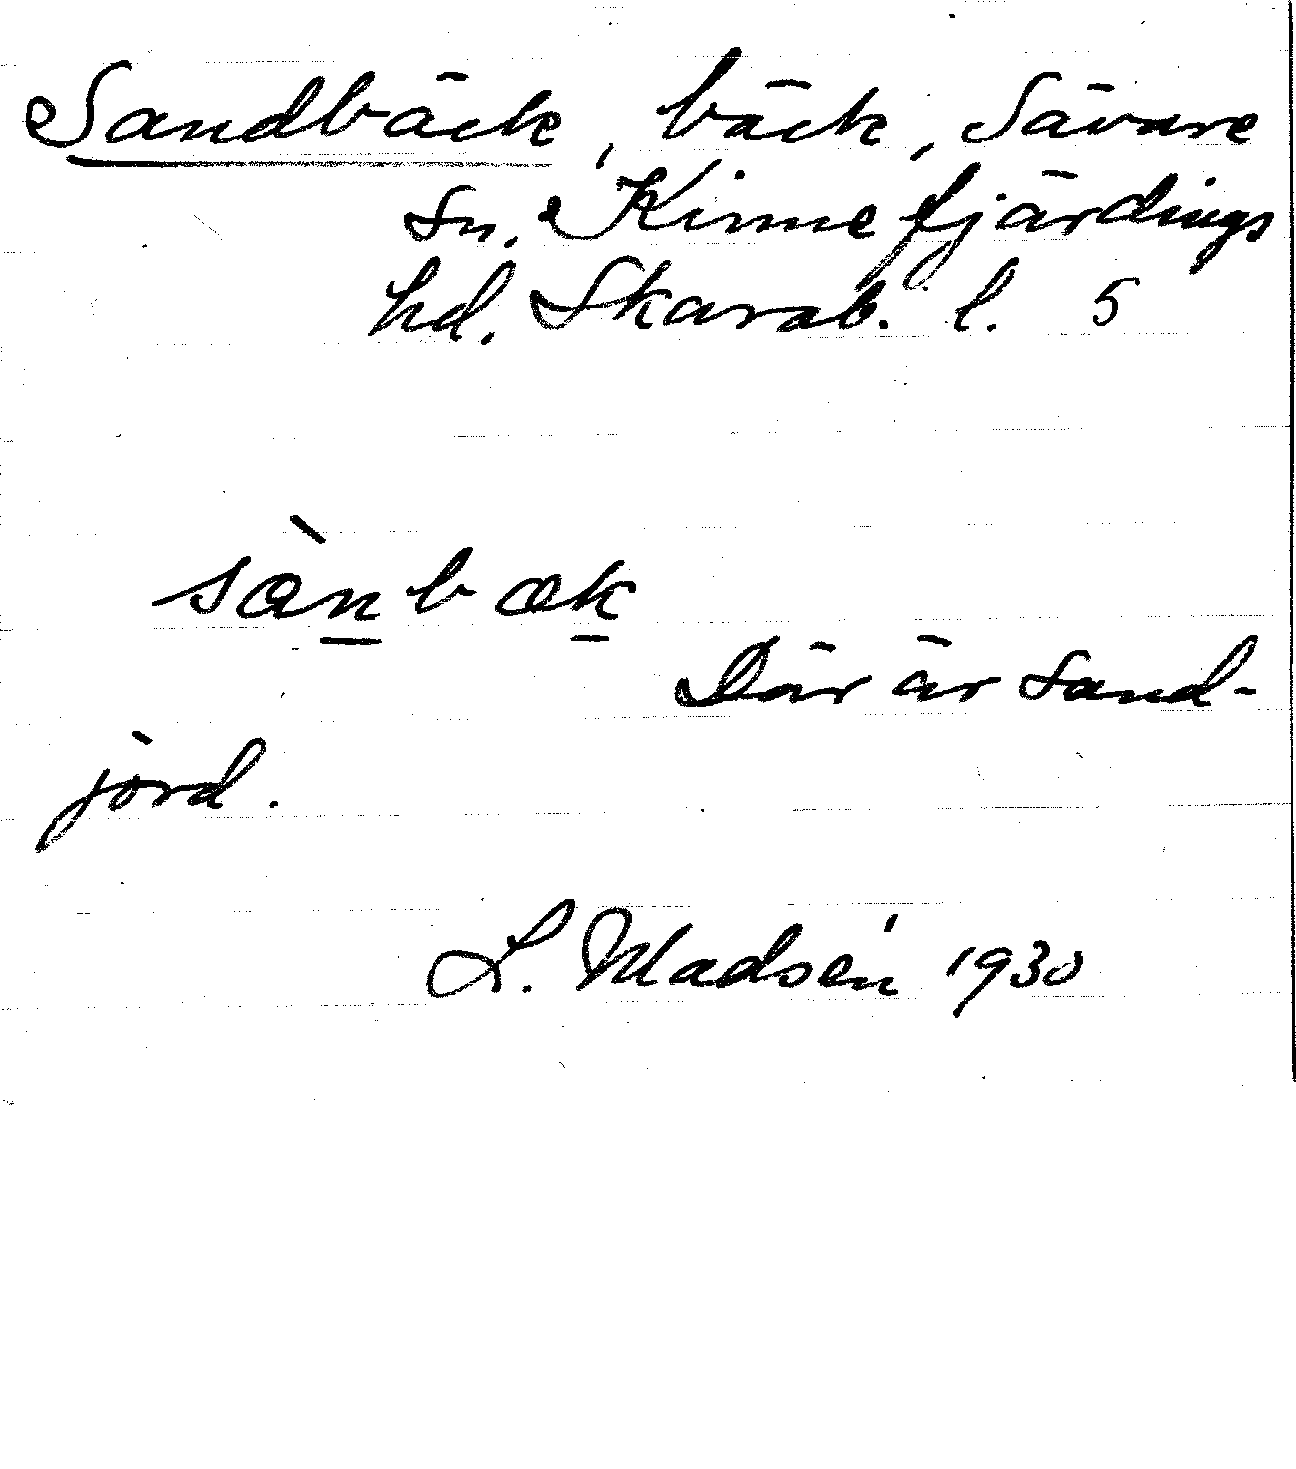 Sandbäck, bäck, Sävare
sn. Kinnefjärdings
hd. Skarab. l. 5
sànbæk
Där är sand-
jord.
L. Madsén 1930